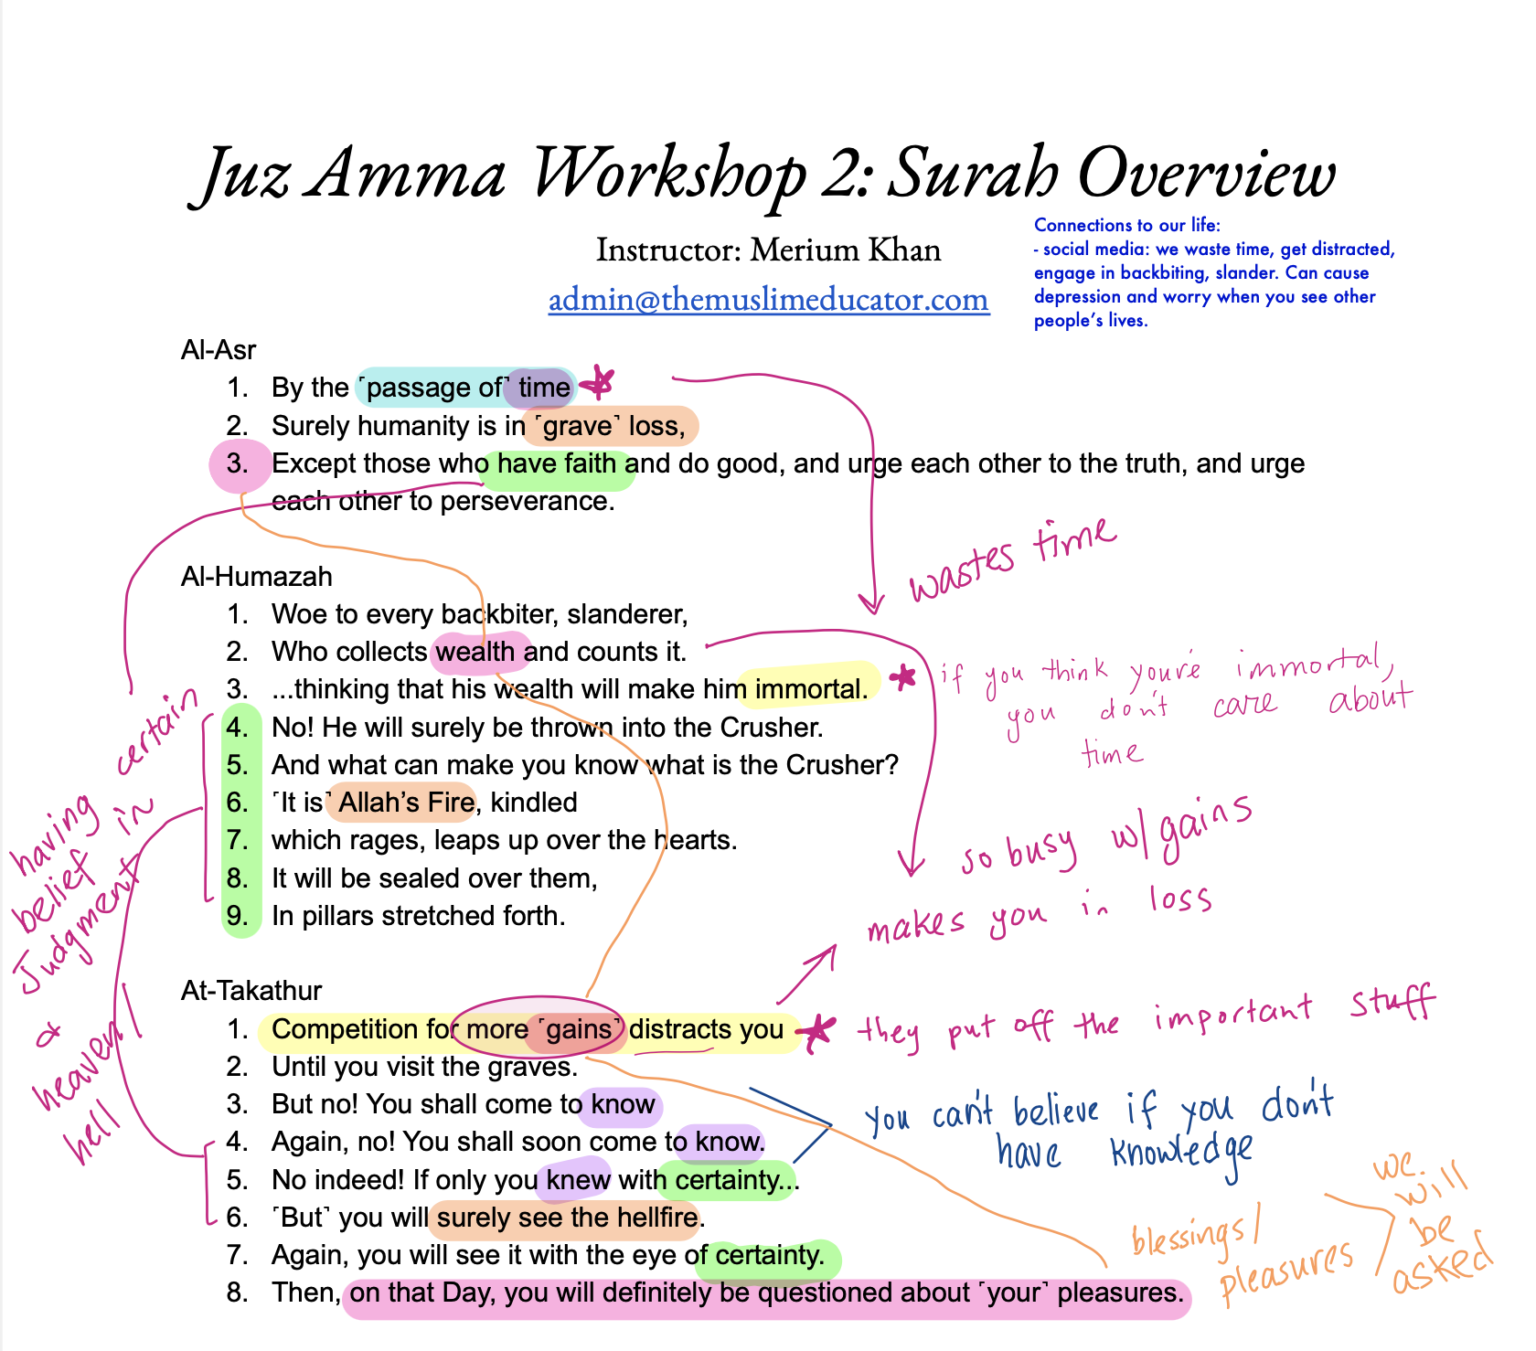 Juz Amma Workshop 2: Surah Overview
Instructor: Merium Khan
admin@themuslimeducator.com
Connections to our life:
- social media: we waste time, get distracted,
engage in backbiting, slander. Can cause
depression and worry when you see other
people's lives.
Al-Asr
1. By the ˹passage of˺ time
2. Surely humanity is in ˹grave˺ loss,
3. Except those who have faith and do good, and urge each other to the truth, and urge
each other to perseverance.
wastes time
Al-Humazah
1. Woe to every backbiter, slanderer,
2. Who collects wealth and counts it.
3. ...thinking that his wealth will make him immortal.
if you think you're immortal,
you don't care about
time
4. No! He will surely be thrown into the Crusher.
5. And what can make you know what is the Crusher?
6. ˹It is˺ Allah's Fire, kindled
7. which rages, leaps up over the hearts.
8. It will be sealed over them,
9. In pillars stretched forth.
so busy w/ gains
makes you in loss
having certain
belief in
Judgment
&
heaven/
hell
At-Takathur
1. Competition for more ˹gains˺ distracts you
they put off the important stuff
2. Until you visit the graves.
3. But no! You shall come to know
4. Again, no! You shall soon come to know.
5. No indeed! If only you knew with certainty...
6. ˹But˺ you will surely see the hellfire.
7. Again, you will see it with the eye of certainty.
8. Then, on that Day, you will definitely be questioned about ˹your˺ pleasures.
you can't believe if you don't
have knowledge
blessings/
pleasures
we
will
be
asked